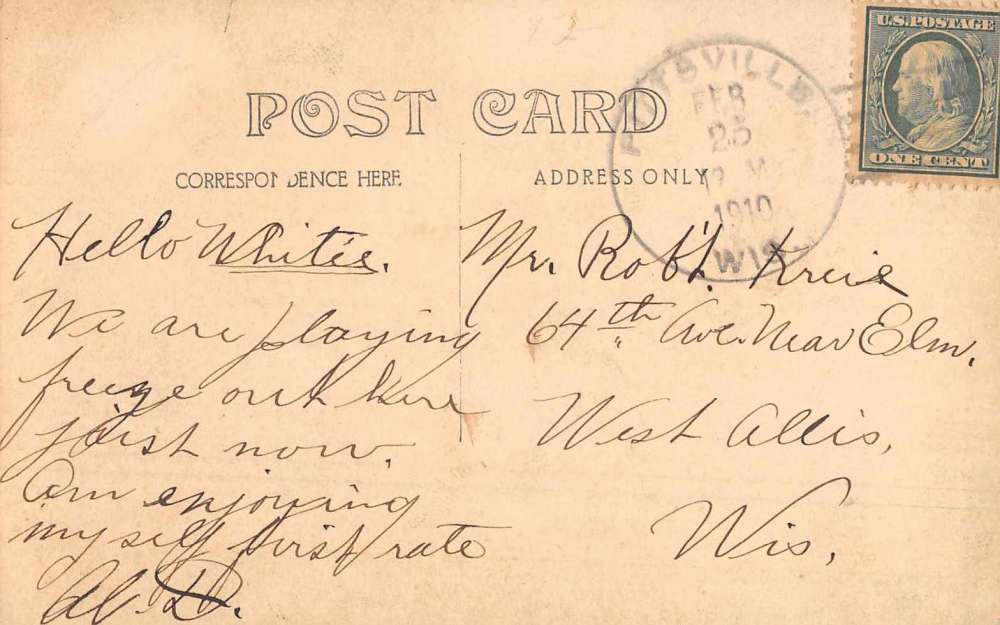 U.S. POSTAGE
ONE CENT
PITTSVILLE
FEB
25
M
1910
WIS
POST CARD
CORRESPONDENCE HERE
ADDRESS ONLY
Hello Whitie.
We are playing
freeze out here
just now.
Am enjoying
myself first rate
Al. D.
Mr. Robt. Kreie
64th Ave. Near Elm.
West Allis,
Wis.